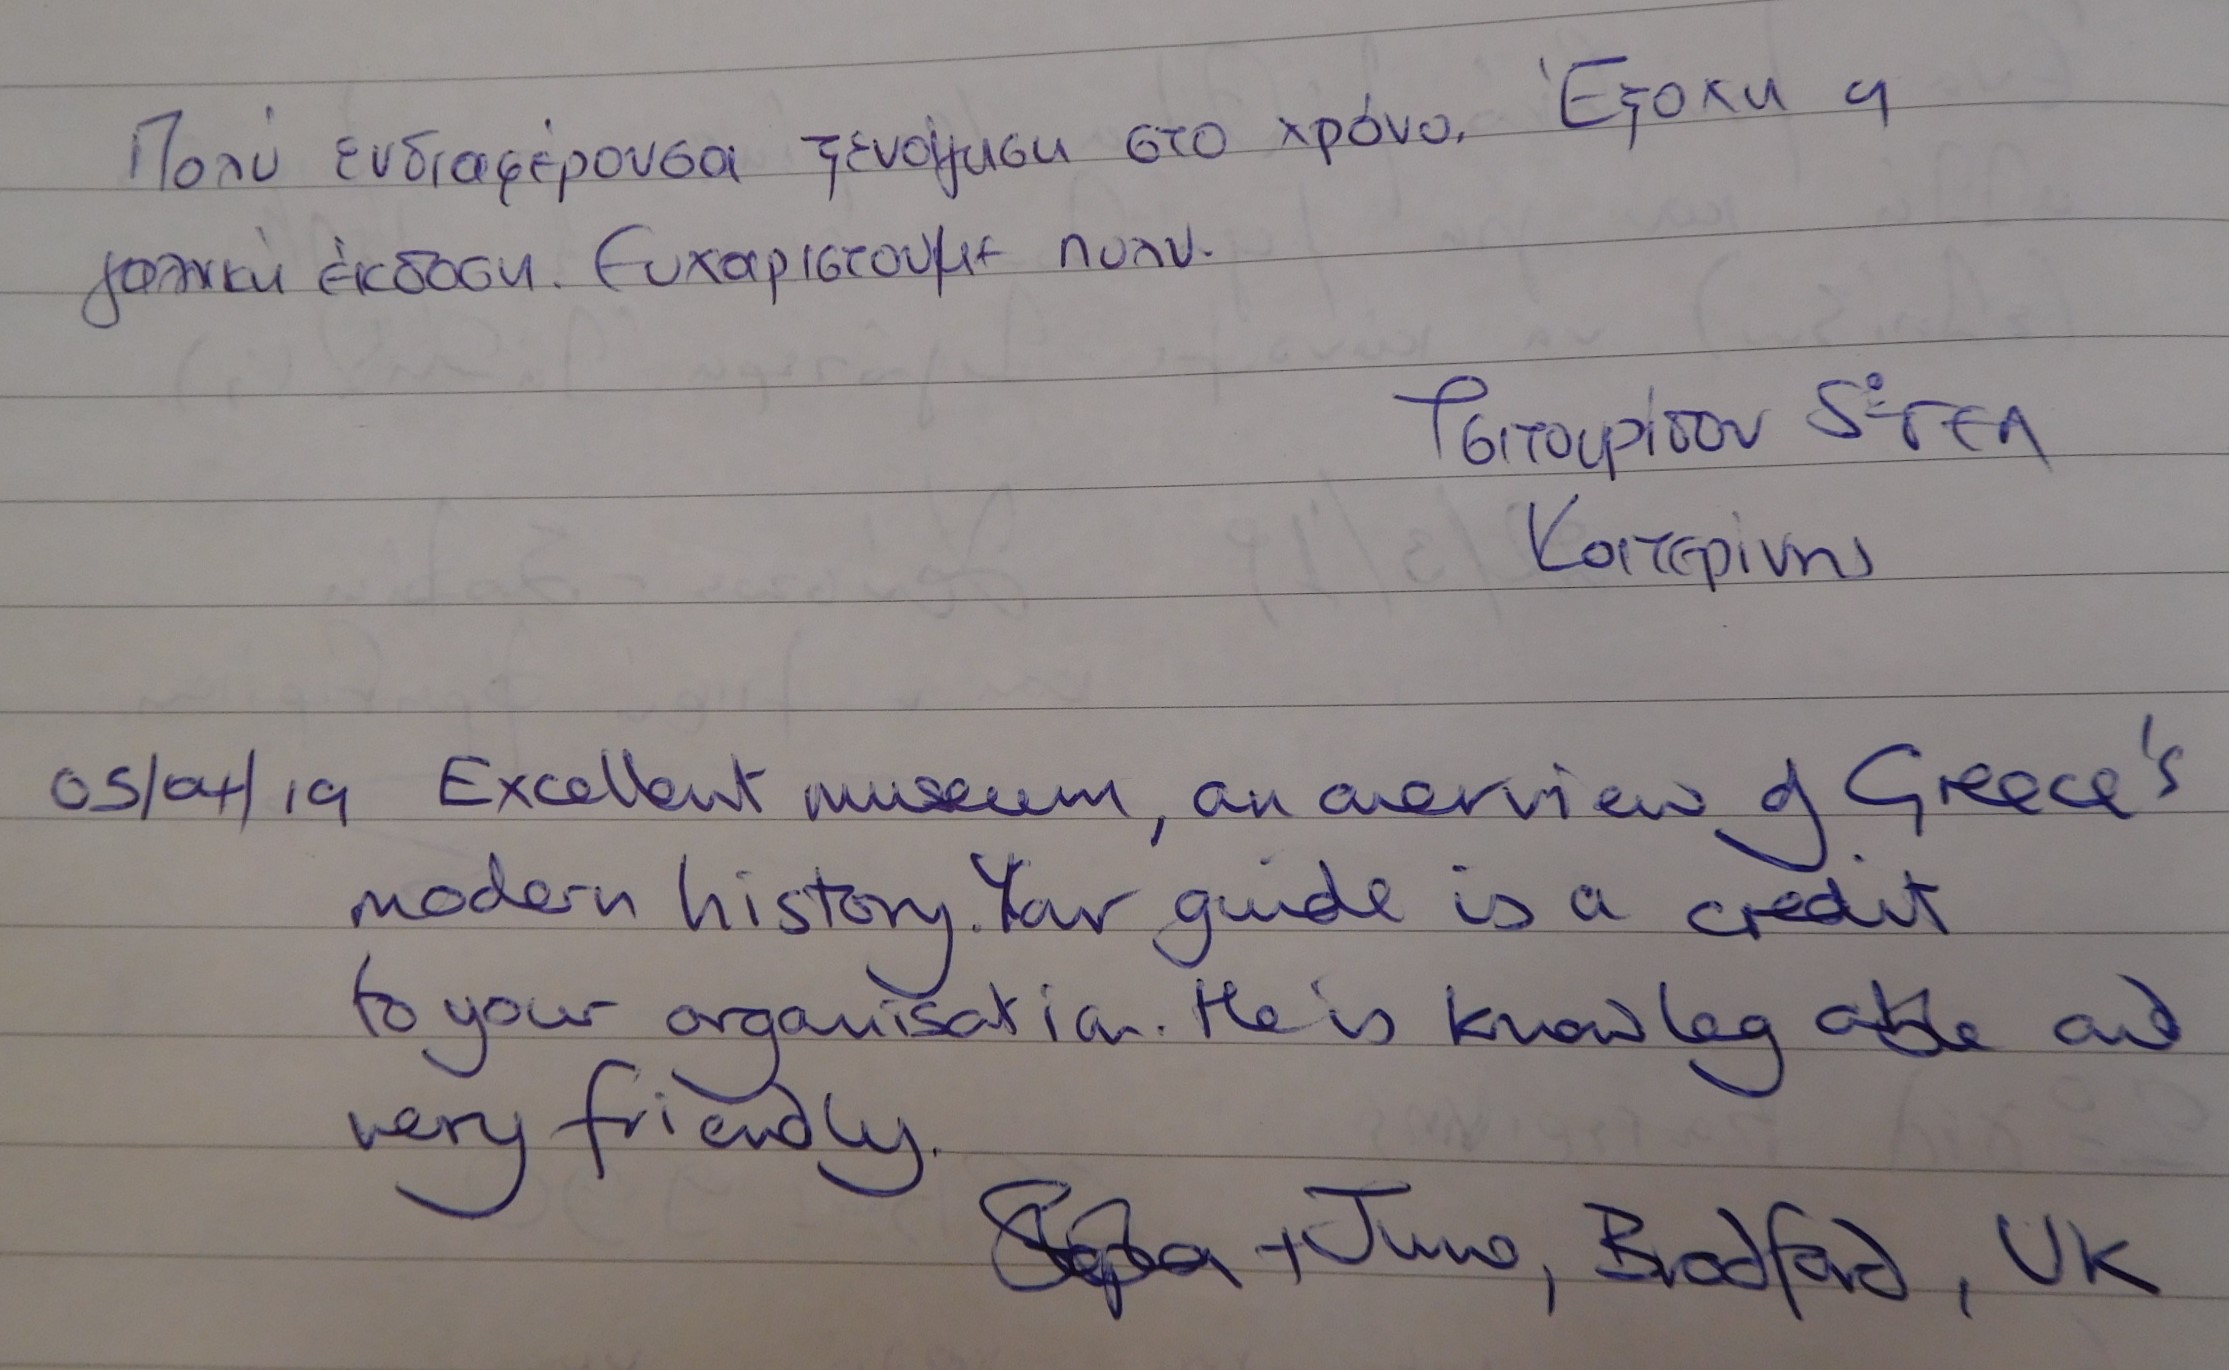 Πολύ ενδιαφέρουσα ξενάγηση στο χρόνο. Έξοχη η
γαλλική έκδοση. Ευχαριστούμε πολυ.
5º ΓΕΛ
Κατερίνης
05/04/19 Excellent museum, an overview of Greece's
modern history. Your guide is a credit
to your organisation. He is knowlegable and
very friendly.
+ June, Bradford, UK